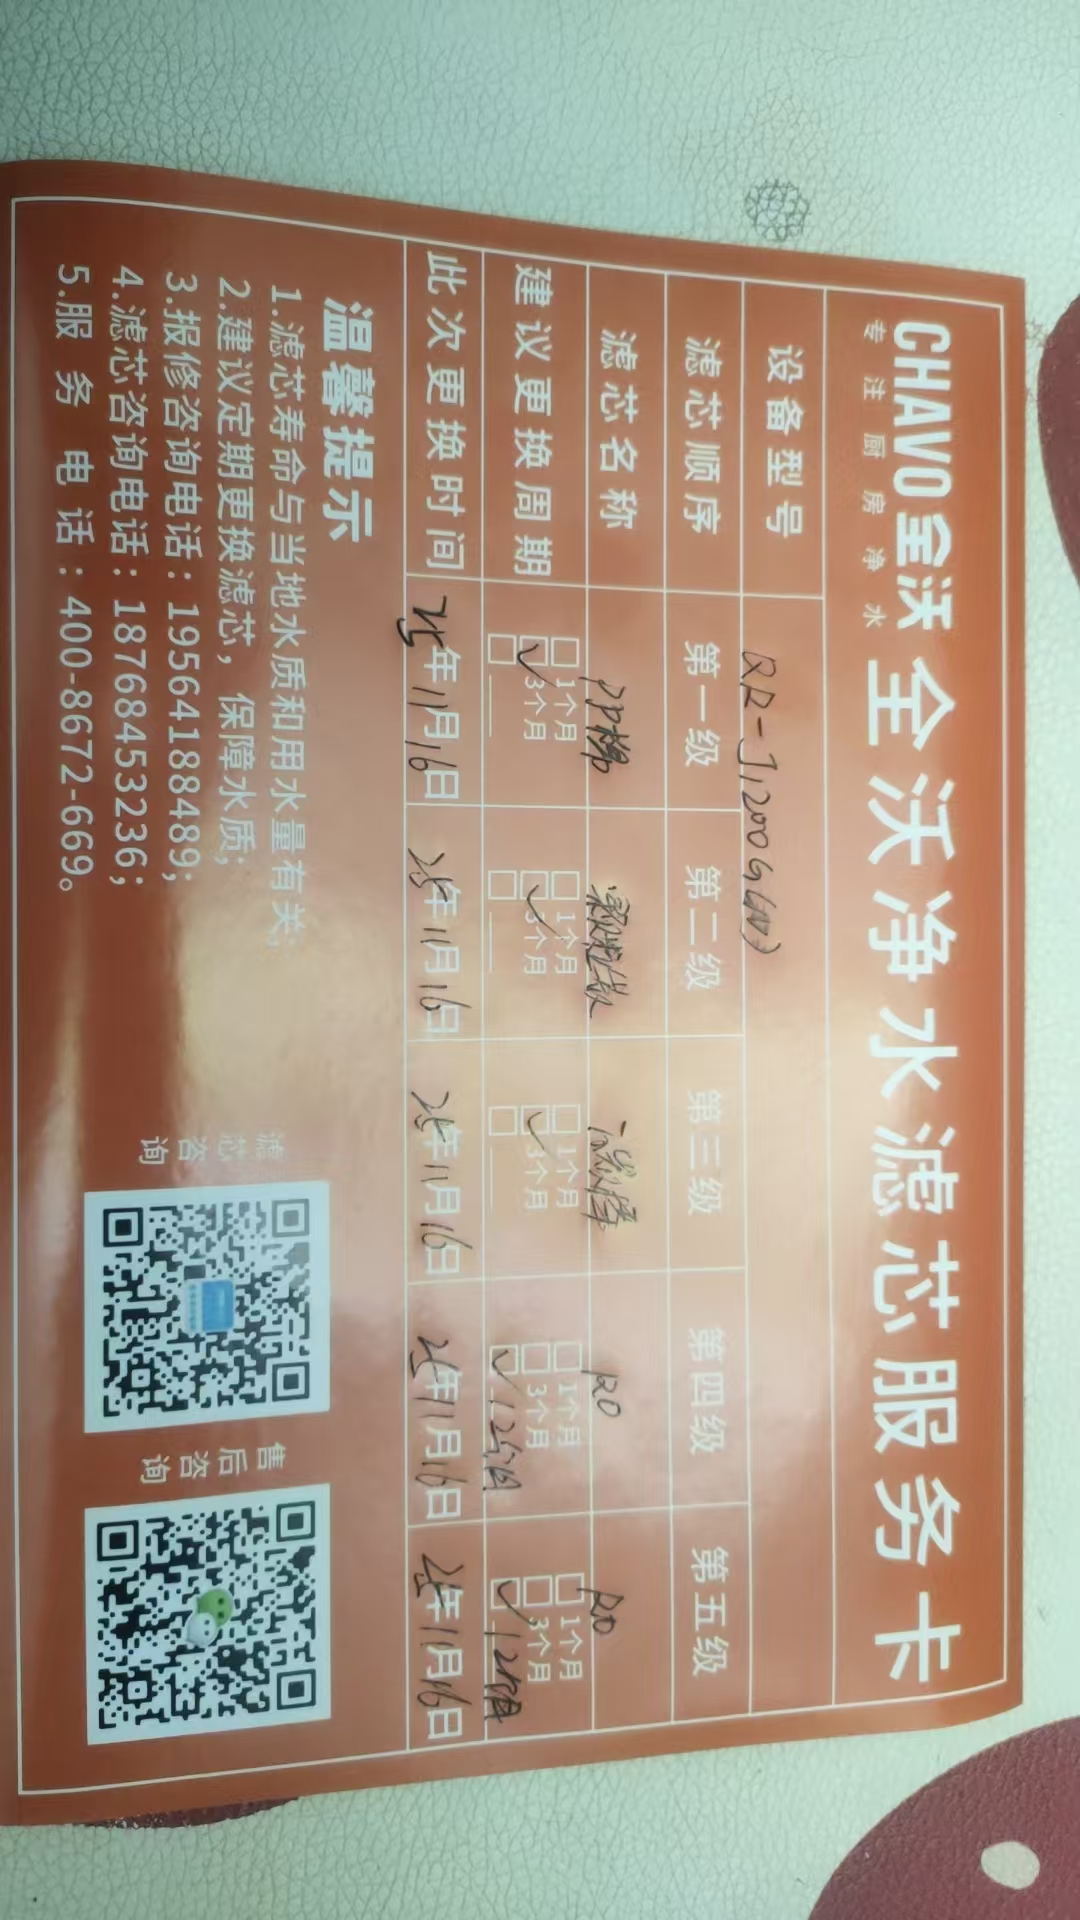 CHAVO全沃 全沃净水滤芯服务卡
专注厨房净水
设备型号
滤芯顺序 第一级 第二级 第三级 第四级 第五级
滤芯名称 PP棉 RO RO
建议更换周期 □1个月 □1个月 □1个月 □1个月 □1个月
☑3个月 ☑3个月 ☑3个月 □3个月 □3个月
□ □ □ ☑12个月 ☑12个月
此次更换时间 25年11月16日 25年11月16日 25年11月16日 25年11月16日 25年11月16日
温馨提示
1.滤芯寿命与当地水质和用水量有关;
2.建议定期更换滤芯，保障水质;
3.报修咨询电话：19564188489;
4.滤芯咨询电话：18768453236;
5.服务电话：400-8672-669。
滤芯咨询
售后咨询